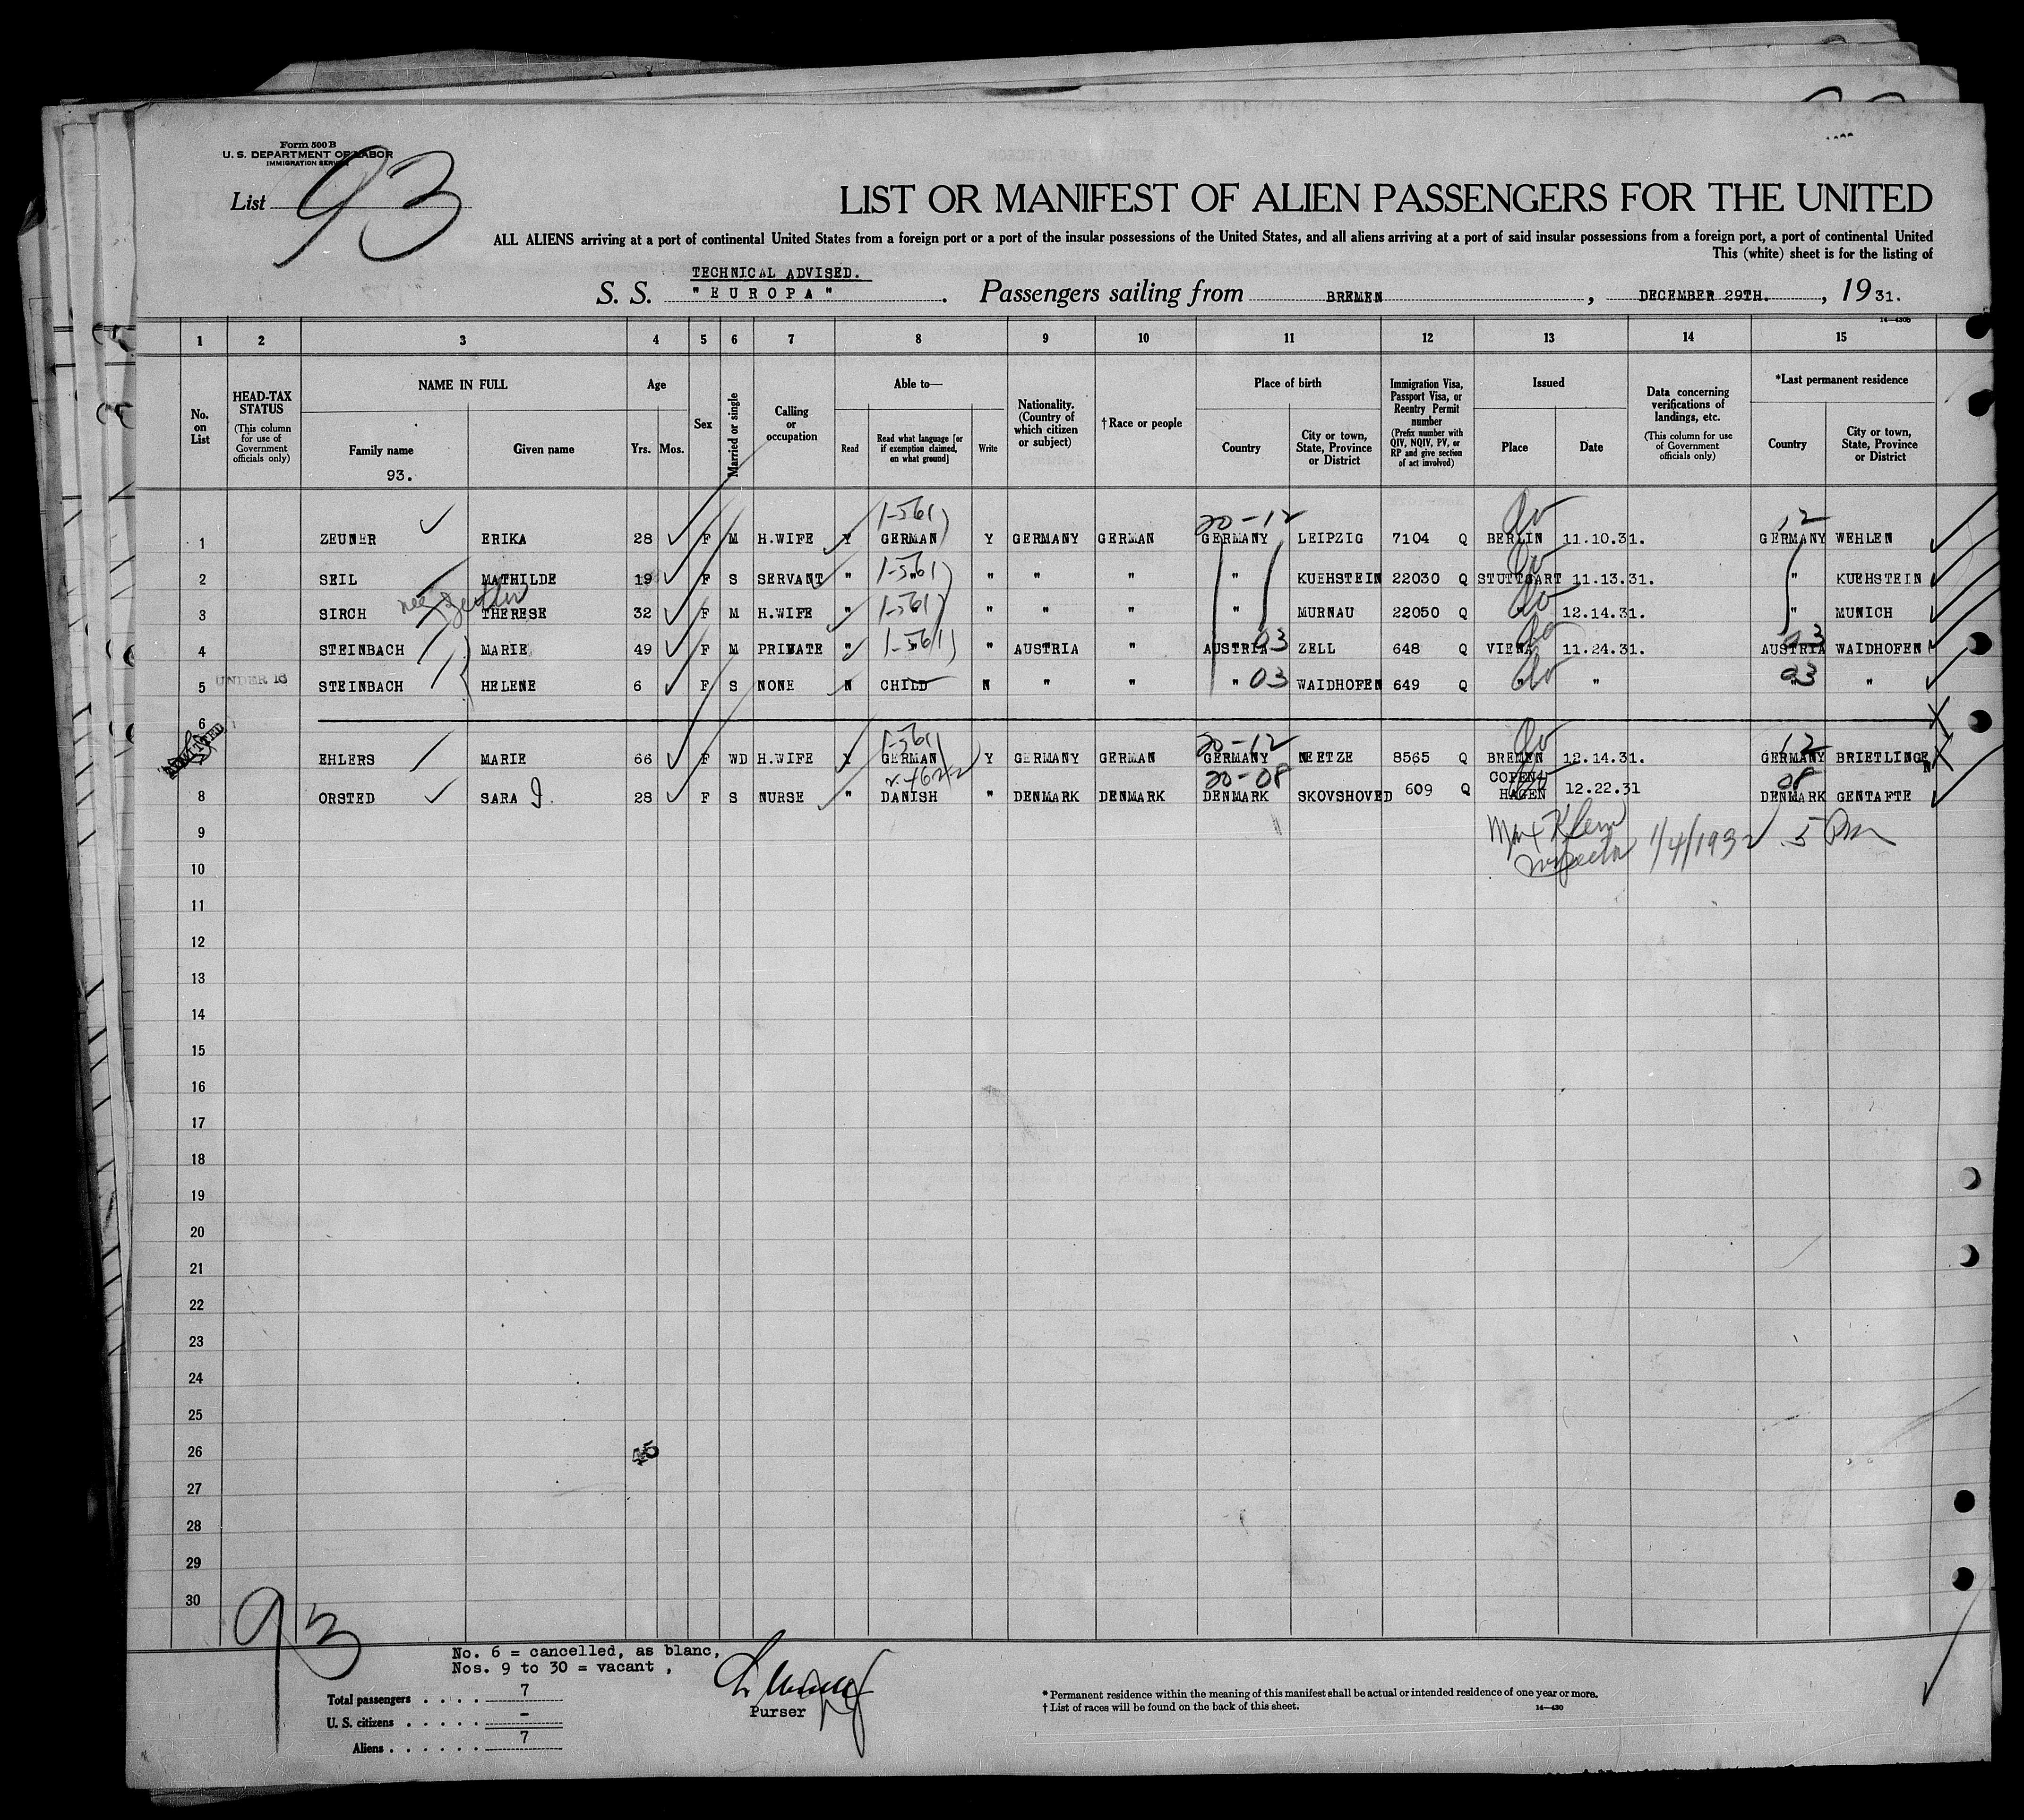 Form 500 B
U. S. DEPARTMENT OF LABOR
IMMIGRATION SERVICE
List 93
LIST OR MANIFEST OF ALIEN PASSENGERS FOR THE UNITED
ALL ALIENS arriving at a port of continental United States from a foreign port or a port of the insular possessions of the United States, and all aliens arriving at a port of said insular possessions from a foreign port, a port of continental United
This (white) sheet is for the listing of
TECHNICAL ADVISED.
S. S. "EUROPA". Passengers sailing from BREMEN, DECEMBER 29TH., 1931.
14—430b
1 2 3 4 5 6 7 8 9 10 11 12 13 14 15
No. on List
HEAD-TAX STATUS (This column for use of Government officials only)
NAME IN FULL
Family name
93.
Given name
Age
Yrs. Mos.
Sex
Married or single
Calling or occupation
Able to—
Read
Read what language [or if exemption claimed, on what ground]
Write
Nationality. (Country of which citizen or subject)
† Race or people
Place of birth
Country
City or town, State, Province or District
Immigration Visa, Passport Visa, or Reentry Permit number (Prefix number with QIV, NQIV, PV, or RP and give section of act involved)
Issued
Place
Date
Data concerning verifications of landings, etc. (This column for use of Government officials only)
*Last permanent residence
Country
City or town, State, Province or District
1-561 20-12 12
1 ZEUNER ERIKA 28 F M H.WIFE Y GERMAN Y GERMANY GERMAN GERMANY LEIPZIG 7104 Q BERLIN 11.10.31. GERMANY WEHLEN
1-561
2 SEIL MATHILDE 19 F S SERVANT " " " " " " KUEHSTEIN 22030 Q STUTTGART 11.13.31. " KUEHSTEIN
1-561
3 SIRCH THERESE 32 F M H.WIFE " " " " " " MURNAU 22050 Q " 12.14.31. " MUNICH
1-561 03 03
4 STEINBACH MARIE 49 F M PRIVATE " " " AUSTRIA " AUSTRIA ZELL 648 Q VIENA 11.24.31. AUSTRIA WAIDHOFEN
UNDER 16
5 STEINBACH HELENE 6 F S NONE N CHILD N " " " 03 WAIDHOFEN 649 Q " " 03 " "
6
ADMITTED
1-561 20-12 12
EHLERS MARIE 66 F WD H.WIFE Y GERMAN Y GERMANY GERMAN GERMANY NEETZE 8565 Q BREMEN 12.14.31. GERMANY BRIETLINGEN
20-08 08
8 ORSTED SARA I. 28 F S NURSE " DANISH " DENMARK DENMARK DENMARK SKOVSHOVED 609 Q COPENHAGEN 12.22.31 DENMARK GENTAFTE
9
Max Klein
Inspector 1/4/1932 5 PM
10
11
12
13
14
15
16
17
18
19
20
21
22
23
24
25
26 45
27
28
29
30
93
No. 6 = cancelled, as blanc,
Nos. 9 to 30 = vacant ,
Total passengers . . . . 7
U. S. citizens . . . . . –
Aliens . . . . . . 7
Purser
* Permanent residence within the meaning of this manifest shall be actual or intended residence of one year or more.
† List of races will be found on the back of this sheet.
14—430